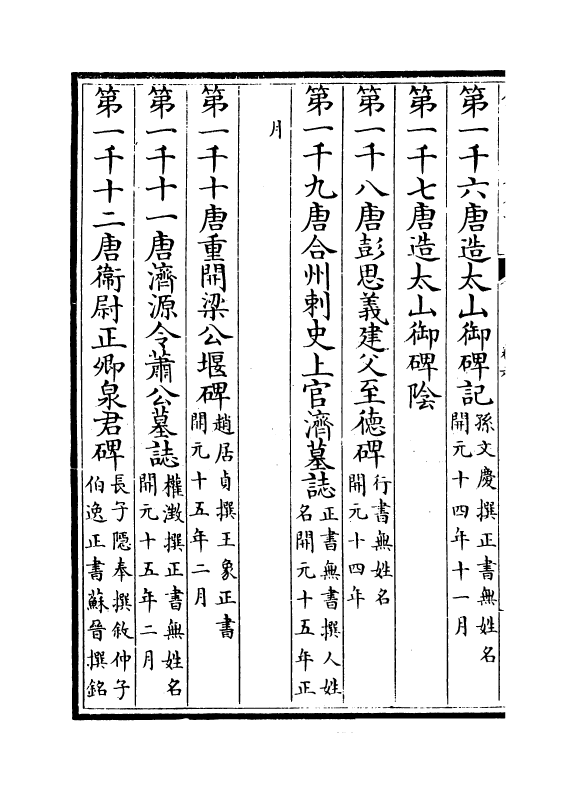 第一千六唐造太山御碑記孫文慶撰正書無姓名開元十四年十一月
第一千七唐造太山御碑陰
第一千八唐彭思義建父至德碑行書無姓名開元十四年
第一千九唐合州刺史上官濟墓誌正書無書撰人姓名開元十五年正
月
第一千十唐重開梁公堰碑趙居貞撰王象正書開元十五年二月
第一千十一唐濟源令蕭公墓誌權澂撰正書無姓名開元十五年二月
第一千十二唐衛尉正卿泉君碑長子隱奉撰敘仲子伯逸正書蘇晉撰銘